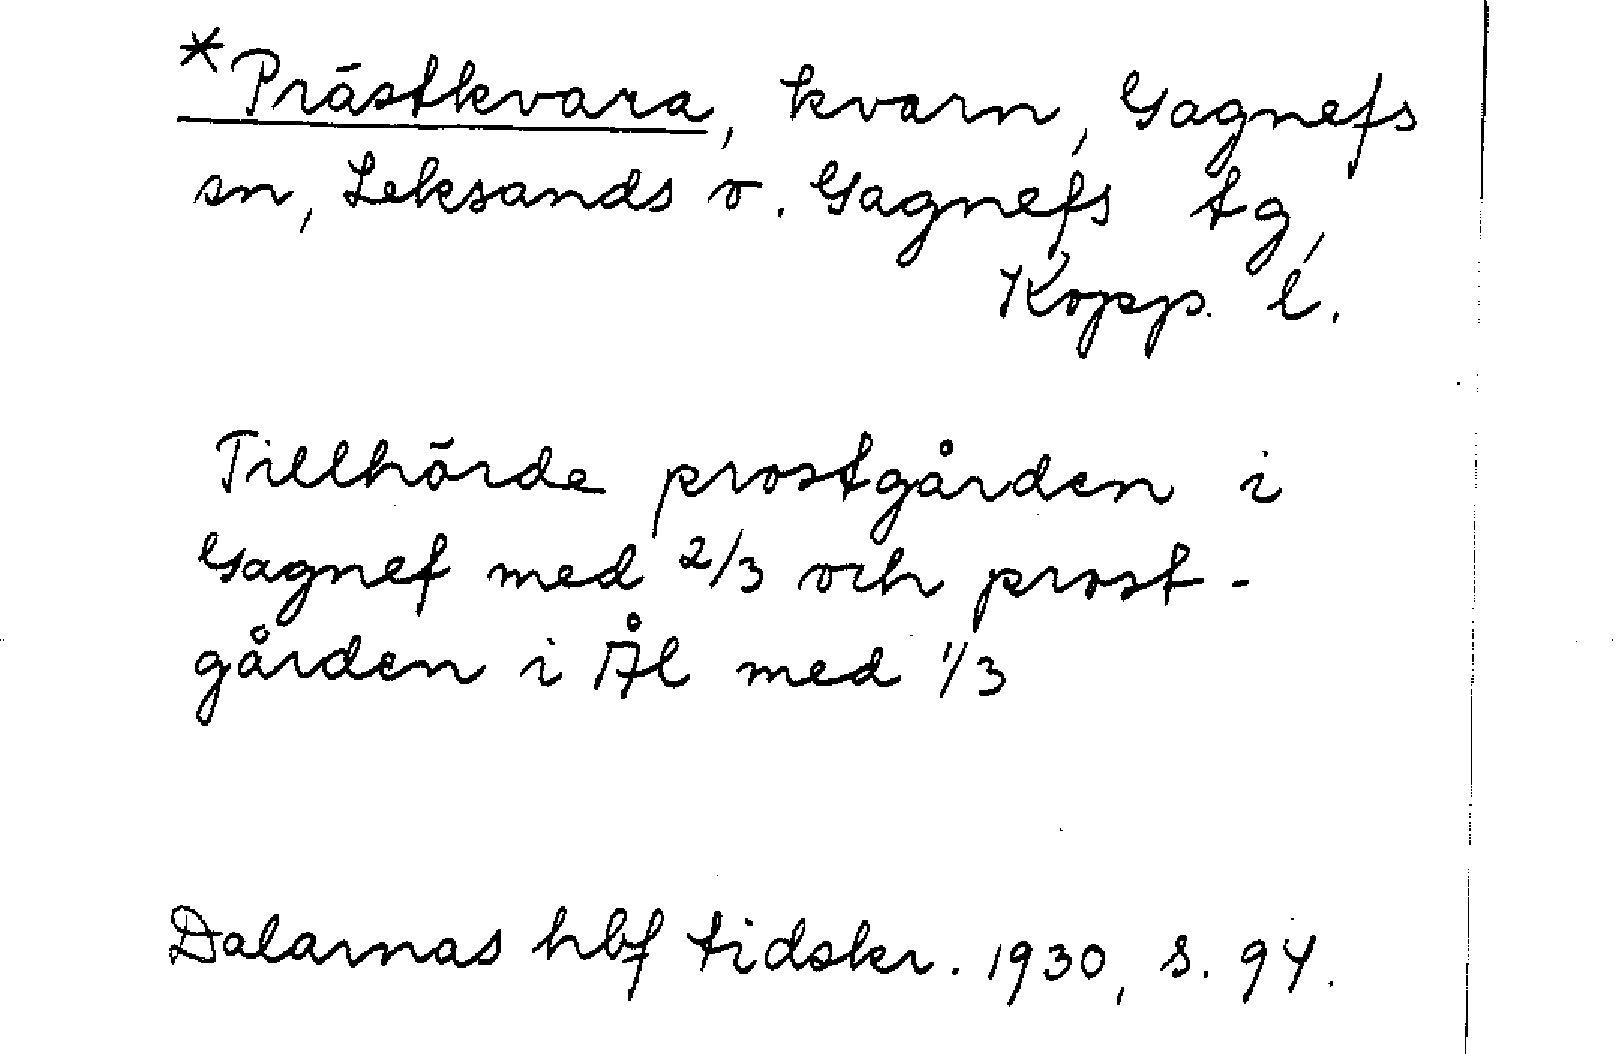 *Prästkvara, kvarn, Gagnefs
sn, Leksands o. Gagnefs tg,
Kopp. l.
Tillhörde prostgården i
Gagnef med 2/3 och prost-
gården i Ål med 1/3
Dalarnas hbf tidskr. 1930, s. 94.